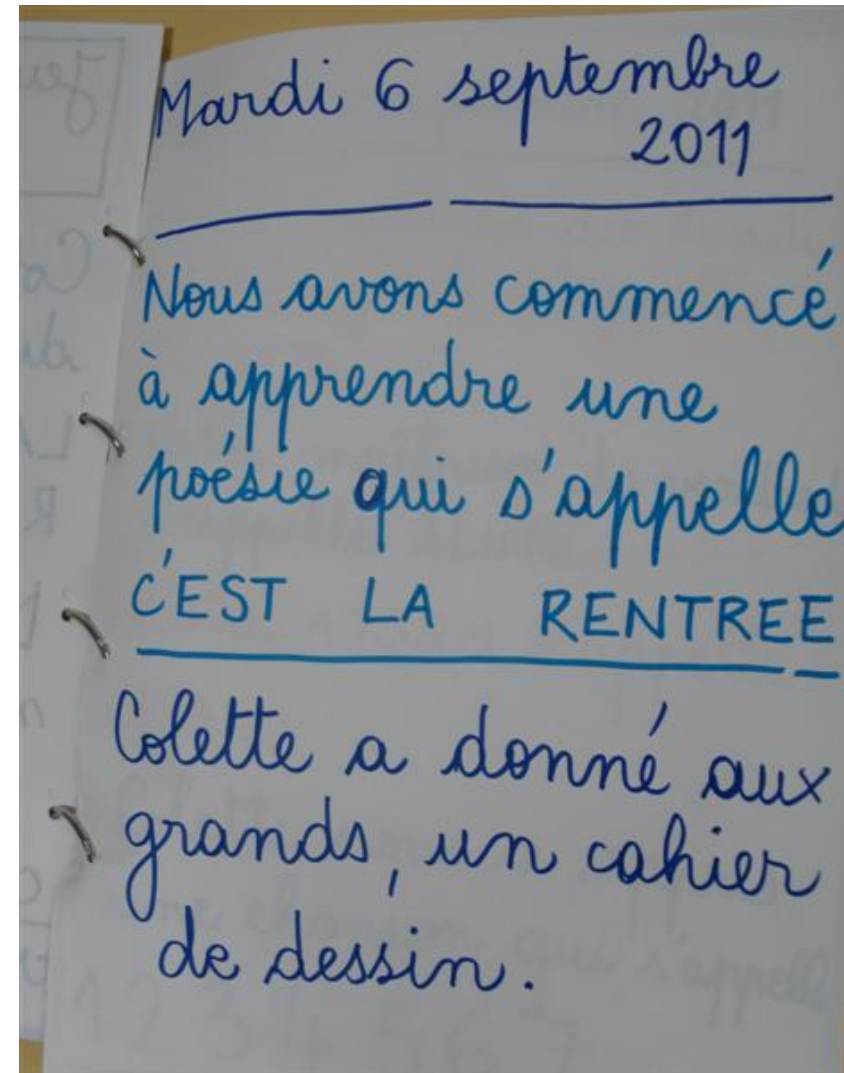 Mardi 6 septembre
2011
Nous avons commencé
à apprendre une
poésie qui s'appelle
C'EST LA RENTREE
Colette a donné aux
grands, un cahier
de dessin.